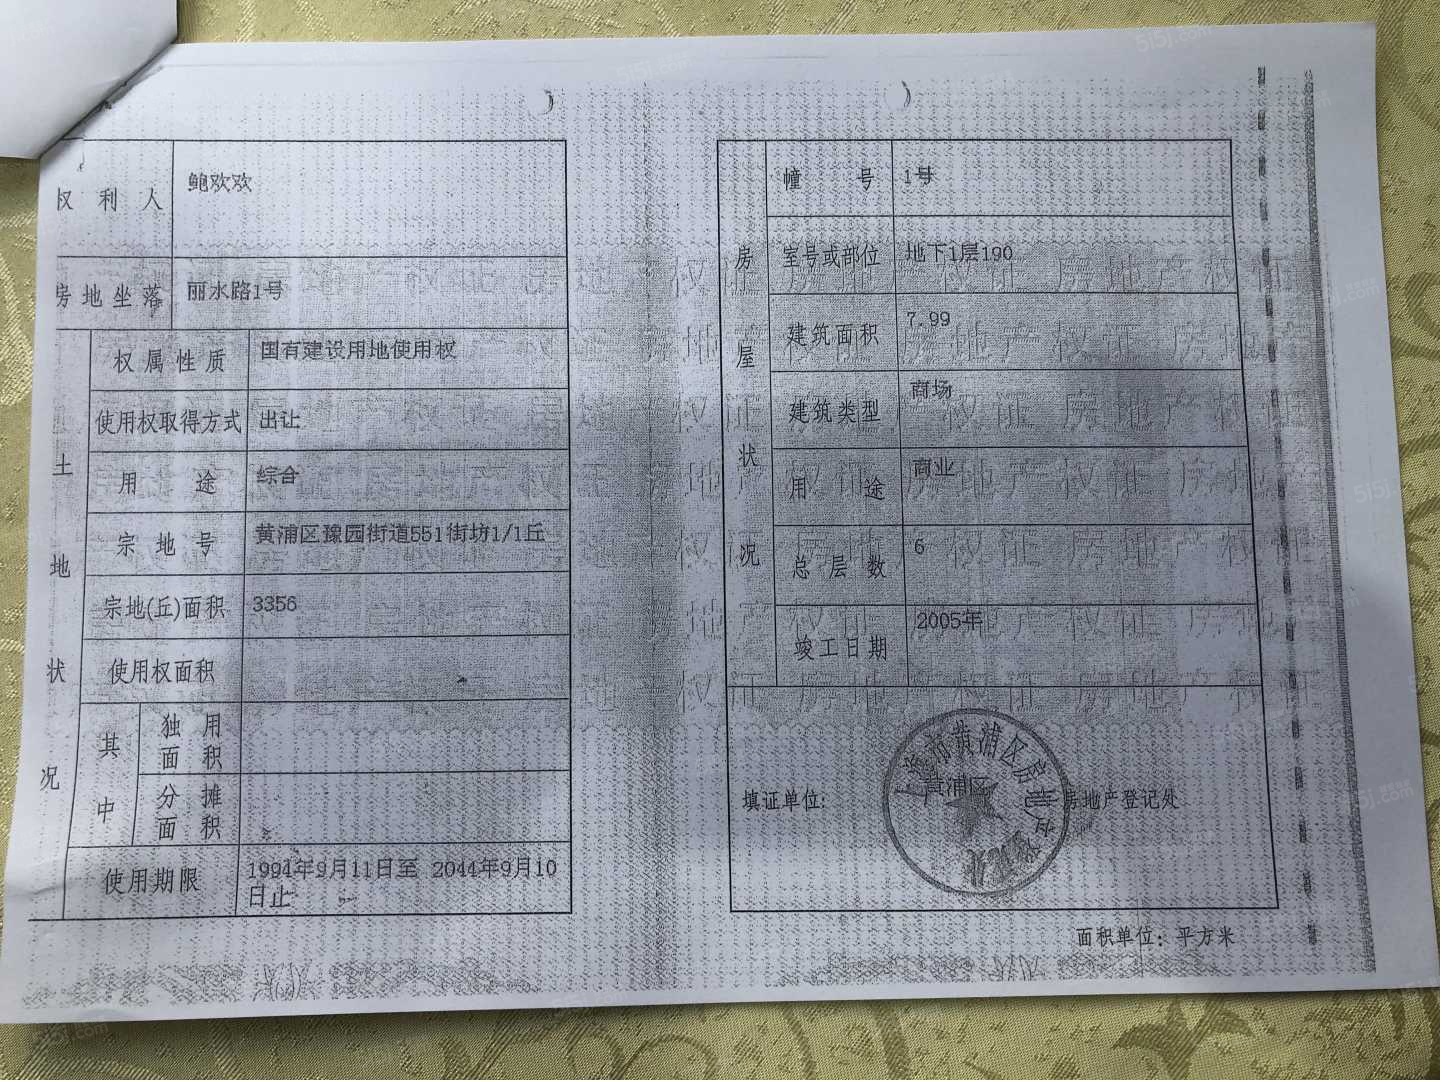 权利人 鲍欢欢
房地坐落 丽水路1号
土地状况
权属性质 国有建设用地使用权
使用权取得方式 出让
用途 综合
宗地号 黄浦区豫园街道551街坊1/1丘
宗地(丘)面积 3356
使用权面积
其中
独用面积
分摊面积
使用期限 1994年9月11日至 2044年9月10
日止
房屋状况
幢号 1号
室号或部位 地下1层190
建筑面积 7.99
建筑类型 商场
用途 商业
总层数 6
竣工日期 2005年
填证单位: 黄浦区 房地产登记处
市黄浦区房地产登记处
面积单位: 平方米
5i5j.com